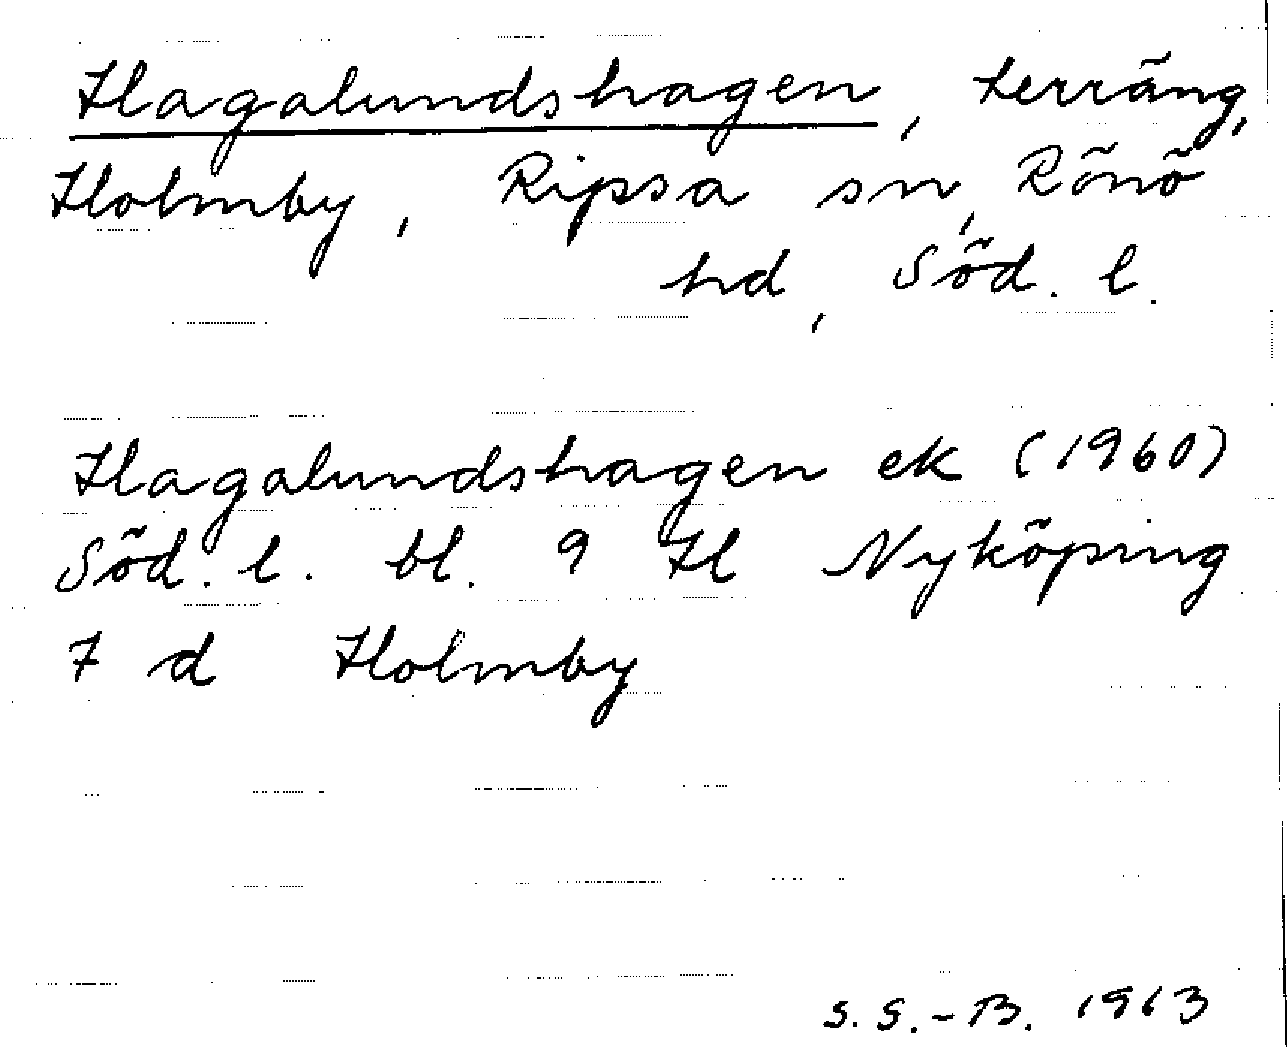 Hagalundshagen, terräng,
Holmby, Ripsa sn, Rönö
hd, Söd. l.
Hagalundshagen ek (1960)
Söd. l. bl. 9 H Nyköping
7 d Holmby
S. S.-B. 1963